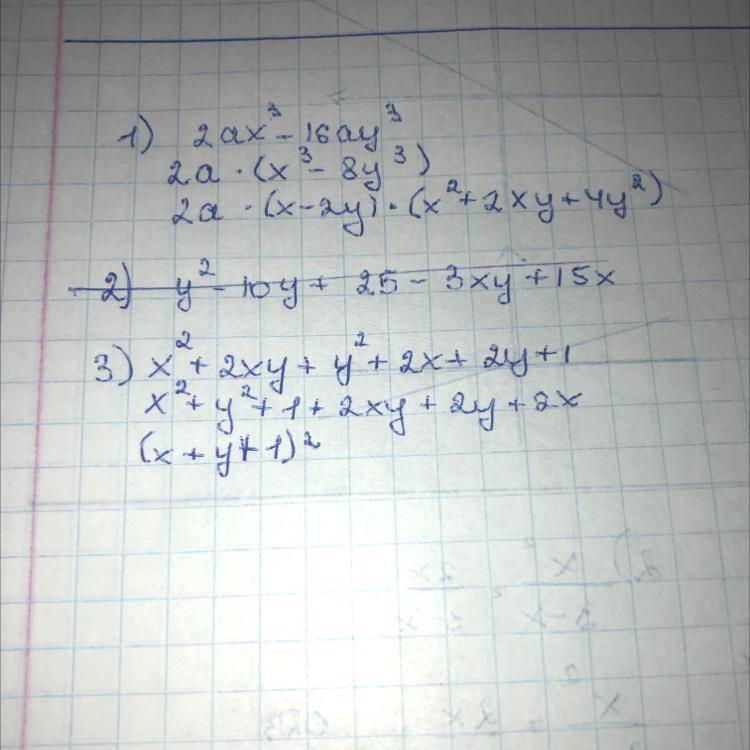 1) 2ax³ - 16ay³
2a · (x³ - 8y³)
2a · (x - 2y) · (x² + 2xy + 4y²)
2) y² - 10y + 25 - 3xy + 15x
3) x² + 2xy + y² + 2x + 2y + 1
x² + y² + 1 + 2xy + 2y + 2x
(x + y + 1)²